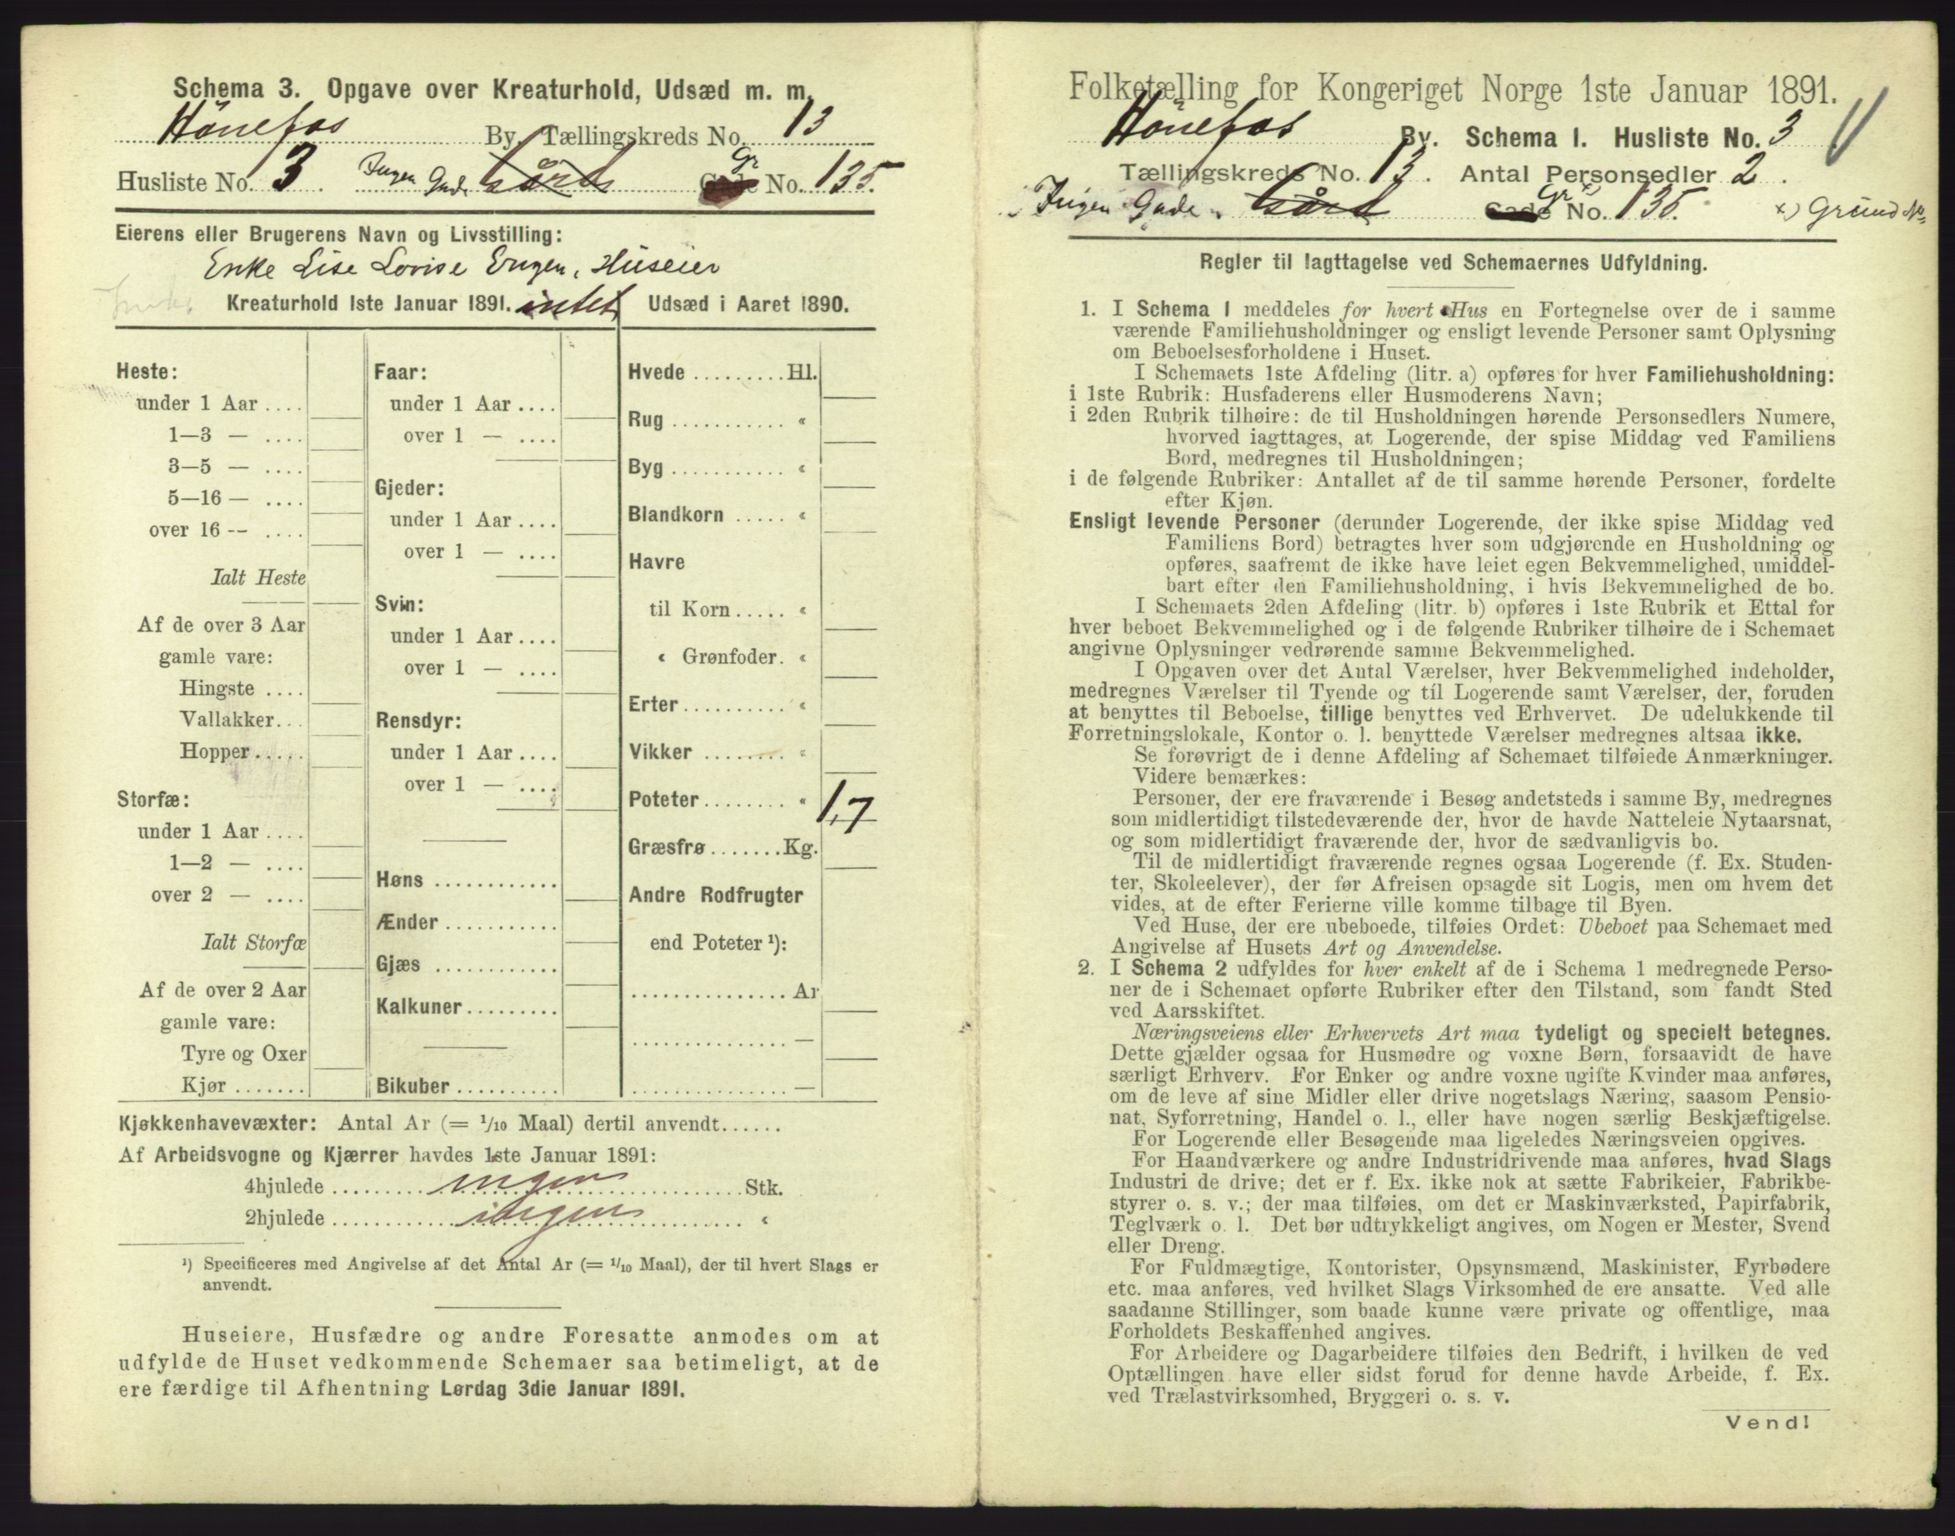 Schema 3. Opgave over Kreaturhold, Udsæd m. m.
Hönefos By, Tællingskreds No. 13
Husliste No. 3 Ingen Gade Gård Gr Gade No. 135.
Eierens eller Brugerens Navn og Livsstilling:
Enke Lise Lovise Engen, Huseier
Kreaturhold 1ste Januar 1891. intet
Heste:
under 1 Aar ....
1—3 — ....
3—5 — ....
5—16 — ....
over 16 — ....
Ialt Heste
Af de over 3 Aar
gamle vare:
Hingste ....
Vallakker...
Hopper.....
Storfæ:
under 1 Aar ....
1—2 — ....
over 2 — ....
Ialt Storfæ
Af de over 2 Aar
gamle vare:
Tyre og Oxer
Kjør .......
Faar:
under 1 Aar ....
over 1 — ....
Gjeder:
under 1 Aar ....
over 1 — ....
Svin:
under 1 Aar ....
over 1 — ....
Rensdyr:
under 1 Aar ....
over 1 — ....
Høns ............
Ænder ...........
Gjæs ............
Kalkuner.........
Bikuber ..........
Udsæd i Aaret 1890.
Hvede .........Hl.
Rug ........... «
Byg ........... «
Blandkorn ..... «
Havre
til Korn ..... «
« Grønfoder. «
Erter.......... «
Vikker ........ «
Poteter........ « 1,7
Græsfrø.......Kg.
Andre Rodfrugter
end Poteter ¹):
............... Ar
............... —
............... —
Kjøkkenhavevæxter: Antal Ar (= 1/10 Maal) dertil anvendt......
Af Arbeidsvogne og Kjærrer havdes 1ste Januar 1891:
4hjulede ......... ingen ......... Stk.
2hjulede ......... ingen ......... «
¹) Specificeres med Angivelse af det Antal Ar (= 1/10 Maal), der til hvert Slags er
anvendt.
Huseiere, Husfædre og andre Foresatte anmodes om at
udfylde de Huset vedkommende Schemaer saa betimeligt, at de
ere færdige til Afhentning Lørdag 3die Januar 1891.
Folketælling for Kongeriget Norge 1ste Januar 1891.
Hönefos By. Schema 1. Husliste No. 3
Tællingskreds No. 13. Antal Personsedler 2.
Ingen Gade. Gård Gade Gr x) No. 135. x) Grund No
Regler til Iagttagelse ved Schemaernes Udfyldning.
1. I Schema 1 meddeles for hvert Hus en Fortegnelse over de i samme
værende Familiehusholdninger og ensligt levende Personer samt Oplysning
om Beboelsesforholdene i Huset.
I Schemaets 1ste Afdeling (litr. a) opføres for hver Familiehusholdning:
i 1ste Rubrik: Husfaderens eller Husmoderens Navn;
i 2den Rubrik tilhøire: de til Husholdningen hørende Personsedlers Numere,
hvorved iagttages, at Logerende, der spise Middag ved Familiens
Bord, medregnes til Husholdningen;
i de følgende Rubriker: Antallet af de til samme hørende Personer, fordelte
efter Kjøn.
Ensligt levende Personer (derunder Logerende, der ikke spise Middag ved
Familiens Bord) betragtes hver som udgjørende en Husholdning og
opføres, saafremt de ikke have leiet egen Bekvemmelighed, umiddel-
bart efter den Familiehusholdning, i hvis Bekvemmelighed de bo.
I Schemaets 2den Afdeling (litr. b) opføres i 1ste Rubrik et Ettal for
hver beboet Bekvemmelighed og i de følgende Rubriker tilhøire de i Schemaet
angivne Oplysninger vedrørende samme Bekvemmelighed.
I Opgaven over det Antal Værelser, hver Bekvemmelighed indeholder,
medregnes Værelser til Tyende og til Logerende samt Værelser, der, foruden
at benyttes til Beboelse, tillige benyttes ved Erhvervet. De udelukkende til
Forretningslokale, Kontor o. l. benyttede Værelser medregnes altsaa ikke.
Se forøvrigt de i denne Afdeling af Schemaet tilføiede Anmærkninger.
Videre bemærkes:
Personer, der ere fraværende i Besøg andetsteds i samme By, medregnes
som midlertidigt tilstedeværende der, hvor de havde Natteleie Nytaarsnat,
og som midlertidigt fraværende der, hvor de sædvanligvis bo.
Til de midlertidigt fraværende regnes ogsaa Logerende (f. Ex. Studen-
ter, Skoleelever), der før Afreisen opsagde sit Logis, men om hvem det
vides, at de efter Ferierne ville komme tilbage til Byen.
Ved Huse, der ere ubeboede, tilføies Ordet: Ubeboet paa Schemaet med
Angivelse af Husets Art og Anvendelse.
2. I Schema 2 udfyldes for hver enkelt af de i Schema 1 medregnede Perso-
ner de i Schemaet opførte Rubriker efter den Tilstand, som fandt Sted
ved Aarsskiftet.
Næringsveiens eller Erhvervets Art maa tydeligt og specielt betegnes.
Dette gjælder ogsaa for Husmødre og voxne Børn, forsaavidt de have
særligt Erhverv. For Enker og andre voxne ugifte Kvinder maa anføres,
om de leve af sine Midler eller drive nogetslags Næring, saasom Pensio-
nat, Syforretning, Handel o. l., eller have nogen særlig Beskjæftigelse.
For Logerende eller Besøgende maa ligeledes Næringsveien opgives.
For Haandværkere og andre Industridrivende maa anføres, hvad Slags
Industri de drive; det er f. Ex. ikke nok at sætte Fabrikeier, Fabrikbe-
styrer o. s. v.; der maa tilføies, om det er Maskinværksted, Papirfabrik,
Teglværk o. l. Det bør udtrykkeligt angives, om Nogen er Mester, Svend
eller Dreng.
For Fuldmægtige, Kontorister, Opsynsmænd, Maskinister, Fyrbødere
etc. maa anføres, ved hvilket Slags Virksomhed de ere ansatte. Ved alle
saadanne Stillinger, som baade kunne være private og offentlige, maa
Forholdets Beskaffenhed angives.
For Arbeidere og Dagarbeidere tilføies den Bedrift, i hvilken de ved
Optællingen have eller sidst forud for denne havde Arbeide, f. Ex.
ved Trælastvirksomhed, Bryggeri o. s. v.
Vend!